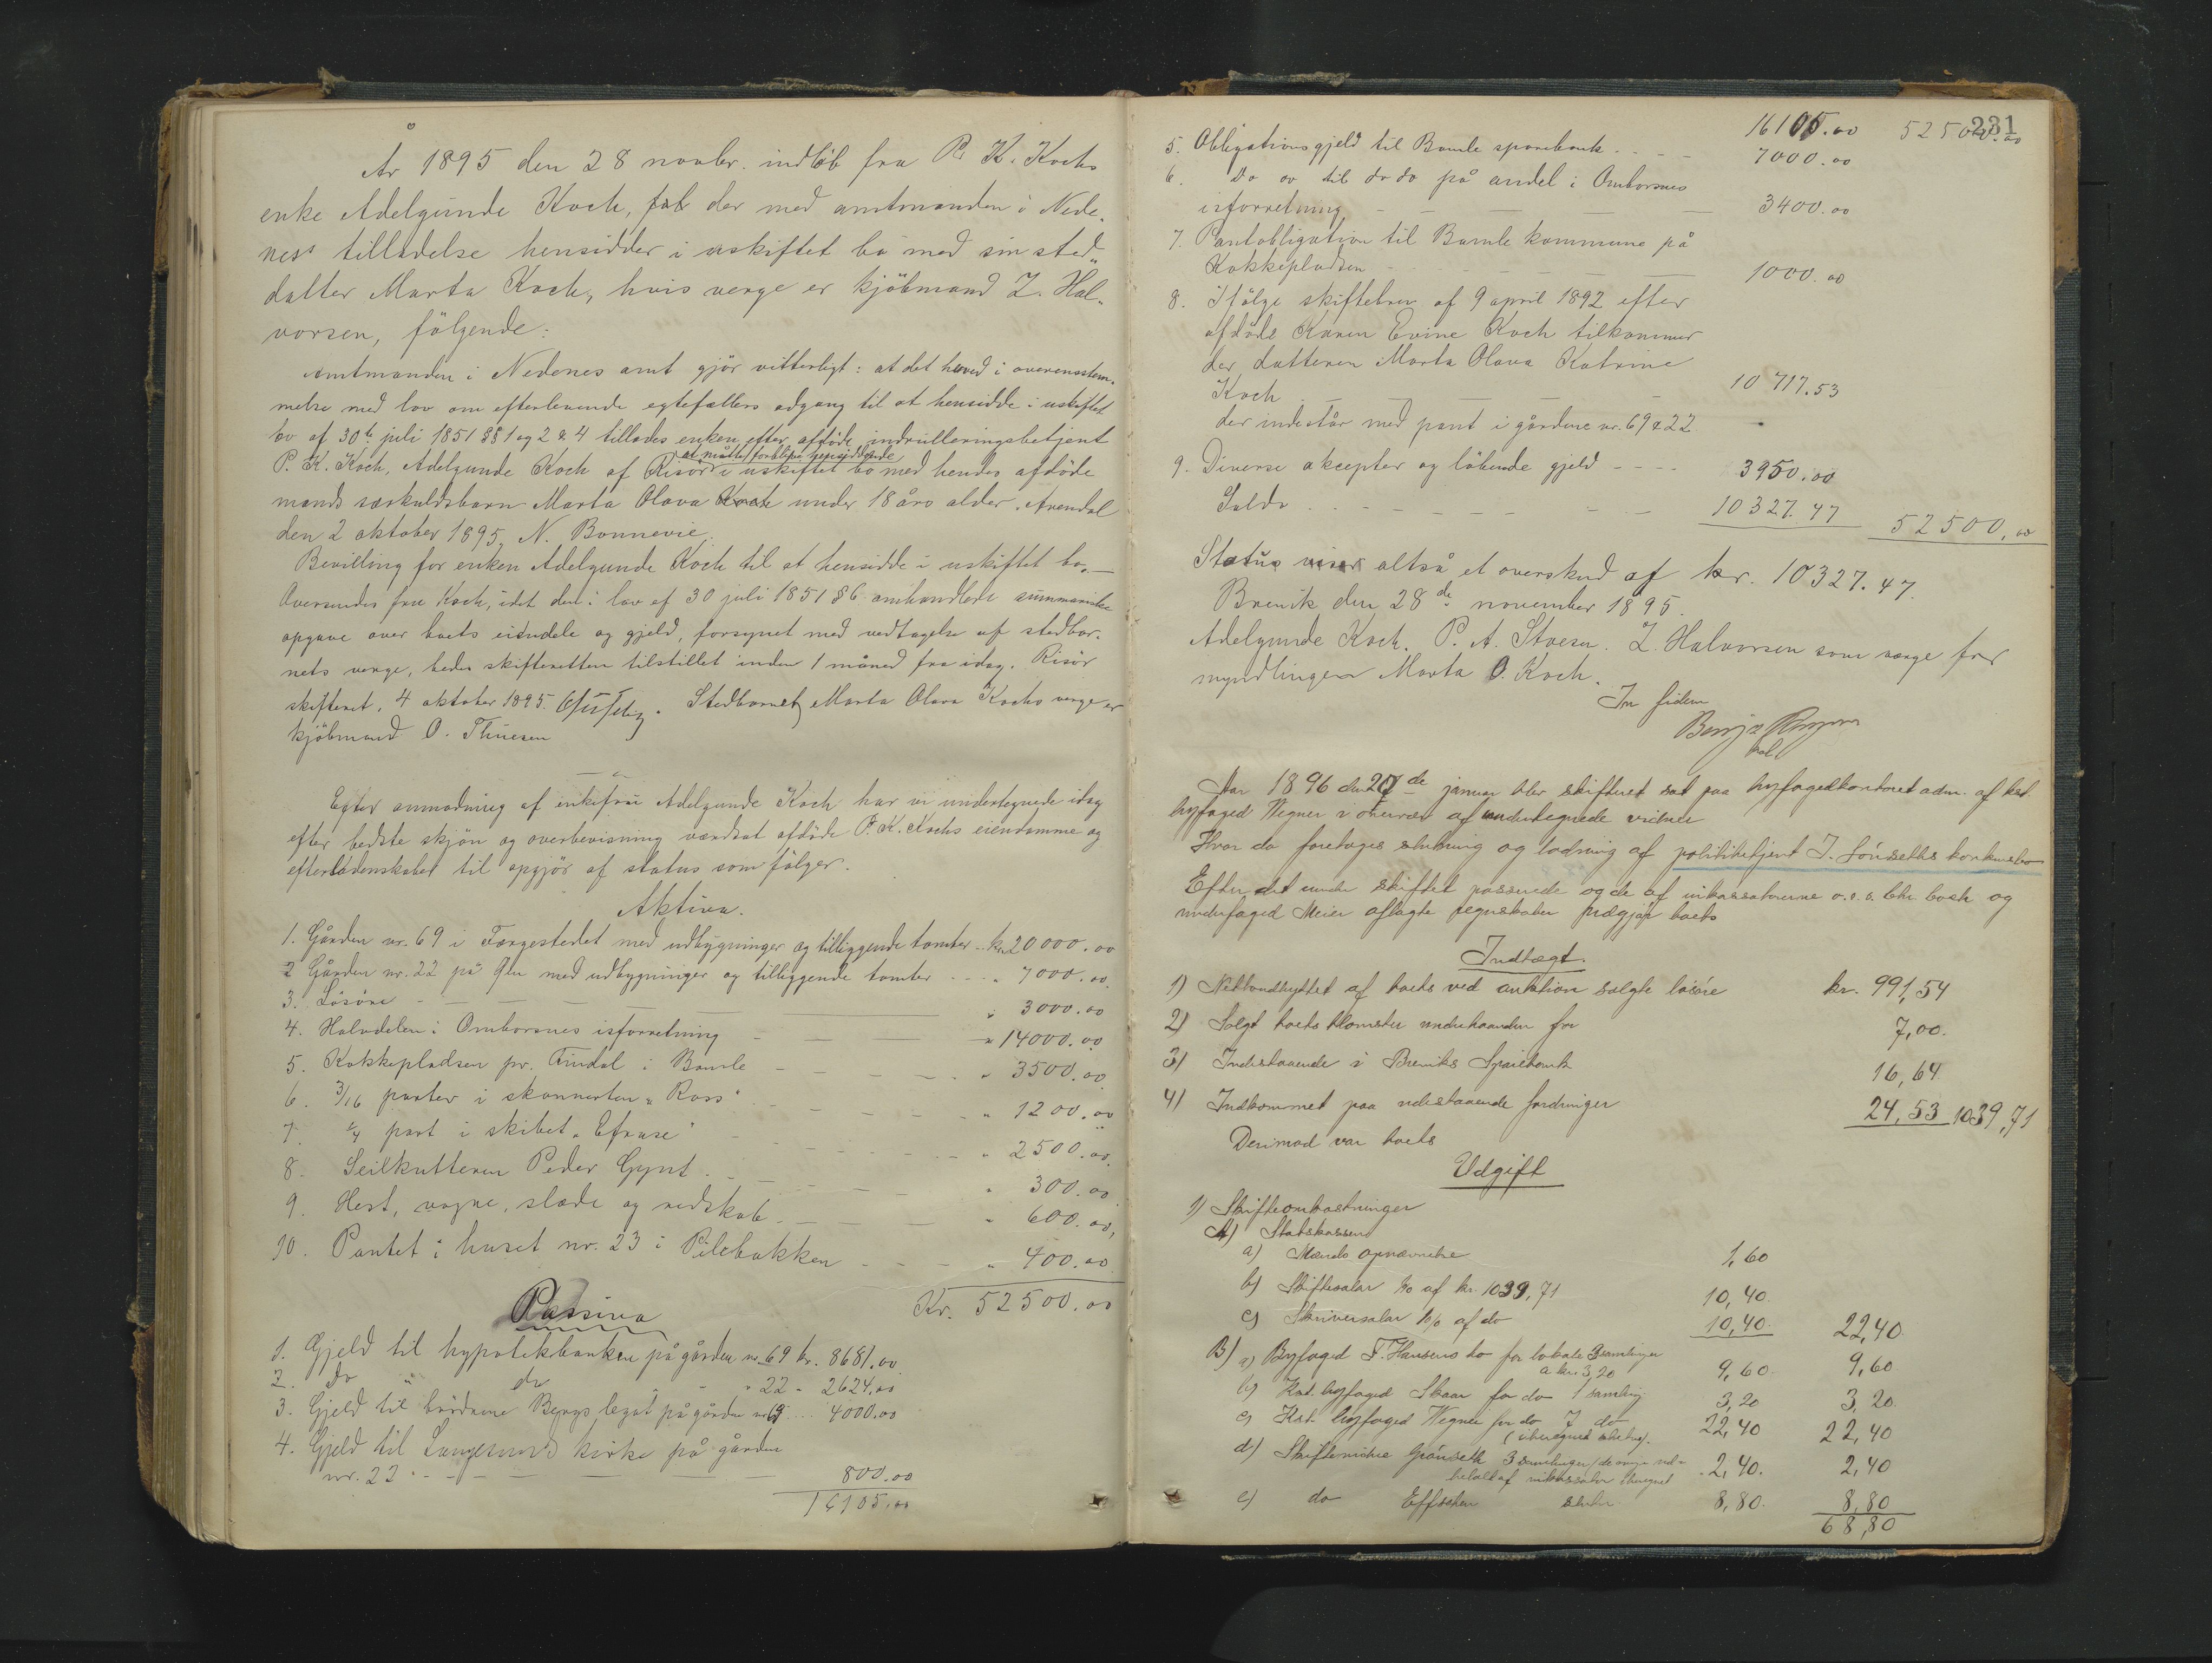 År 1895 den 28 novbr. indløb fra P. K. Kochs
enke Adelgunde Koch, født der med amtmanden i Nede-
nes's tilladelse hensidder i uskiftet bo med sin sted-
datter Marta Koch, hvis verge er kjöbmand Z. Hal-
vorsen, fölgende:
Amtmanden i Nedenes amt gjör vitterligt: at det herved i overensstem-
melse med lov om efterlevende egtefællers adgang til at hensidde i uskiftet
bo af 30te juli 1851 §§ 1 og 2 & 4 tillades enken efter afdöde indrulleringsbetjent
at måtte forblive hensiddende
P. K. Koch, Adelgunde Koch af Risör i uskiftet bo med hendes afdöde
mands særkuldsbarn Marta Olava Koch under 18 års alder. Arendal
den 2 oktober 1895, N. Bonnevie.
Bevilling for enken Adelgunde Koch til at hensidde i uskiftet bo.—
Oversendes fru Koch, idet den i lov af 30 juli 1851 § 6 omhandlede summariske
opgave over boets eiendele og gjeld, forsynet med vedtagelse af stedbar-
nets verge, bedes skifteretten tilstillet inden 1 måned fra idag. Risör
skifteret, 4 oktober 1895. Stedbarnet Marta Olava Kochs verge er
kjöbmand O. Thuesen
Efter anmodning af enkefru Adelgunde Koch har vi undertegnede idag
efter bedste skjön og overbevisning værdsat afdöde P. K. Kochs eiendomme og
efterladenskaber til opgjör af status som fölger.
Aktiva.
1. Gården nr. 69 i Færgestedet med udbygninger og tilliggende tomter - kr. 20000.00
2 Gården nr. 22 på Öen med udbygninger og tilliggende tomter - - - „ 7000.00.
3. Lösöre - — — — „ 3000.00
4. Halvdelen i Omborsnes isforretning - — — „ 14000.00
5. Kokkepladsen pr. Findal i Bamle - - - - „ 3500.00
6. 3/16 parter i skonnerten „Ross" - - - - „ 1200.00
7. 1/4 part i skibet „ - - - - „ 2500.00.
8. Seilkutteren Peder Gynt - - - - „ 300.00
9. Hest, vogne, slæde og redskab - — — „ 600.00,
10. Pantet i huset nr. 23 i Pilebakken - - - „ 400.00
Kr. 52500.00
Passiva
1. Gjeld til hypotekbanken på gården nr. 69 kr. 8681.00
2. do " do - - „ 22 - 2624.00
3. Gjeld til brödrene Bergs legat på gården nr. 69 ... 4000.00
4. Gjeld til Langesunds kirke på gården
nr. 22 - - — — — 800.00
16105.00
231
16105.00 52500.00
5. Obligationsgjeld til Bamle sparebank - - - 7000.00
6. do av til do do på andel i Omborsnes
isforretning - — — — — 3400.00
7. Pantobligation til Bamle kommune på
Kokkepladsen - - - - — — 1000.00
8. Ifölge skiftebrev af 9 april 1892 efter
afdöde Karen Evine Koch tilkommer
der datteren Marta Olava Katrine
Koch - — — — 10717.53
der indestår med pant i gårdene nr. 69 & 22.
9. Diverse aksepter og löbende gjeld - - - - 3950.00
Saldo - - - - - - - - 10327.47 52500.00
Status viser altså et overskud af kr. 10327.47.
Brevik den 28de november 1895.
Adelgunde Koch. P. A. Stoesen. Z. Halvorsen som verge for
myndlingen Marta O. Koch.
In fidem
Aar 1896 den 27de januar blev skifteret sat paa byfogedkontoret adm. af kst
byfoged Wegner i overvær af undertegnede vidner
Hvor da foretoges slutning og lodning af politibetjent J. Gönseths konkursbo
Efter det under skiftet passerede og de af inkassatorerne o.r.s. Chr. Cock og
underfoged Meier aflagte regnskaber udgjør boets
Indtægt.
1) Nettoudbyttet af boets ved auktion solgte løsøre kr. 991,54
2) Solgt boets blomster underhaanden for 7,00.
3) Indestaaende i Breviks Sparebank 16,64
4) Indkommet paa udestaaende fordringer 24,53 1039,71
Derimod var boets
Udgift
1) Skifteomkostninger
A) Statskassen
a) Mænds opnævnelse 1,60
b) Skiftesalær 1% af kr. 1039,71 10,40.
c) Skriversalær 1% af do 10,40. 22,40.
B) a) Byfoged F. Hansens bo for lokale 3 samlinger
a kr. 3,20 9,60. 9,60.
b) Kst. byfoged Skaar for do 1 samling 3,20 3,20.
c) Kst. byfoged Wegner for do 7 do
(iberegnet slutning). 22,40 22,40
d) Skiftevidne Grönseth 3 samlinger (de øvrige ved-
betalt af inkassator iberegnet 2,40. 2,40
e) do slutn. 8,80. 8,80
68,80